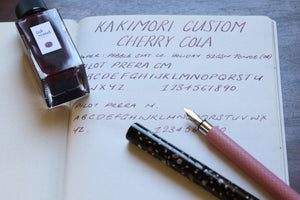 KAKIMORI CUSTOM
CHERRY COLA
PAPER: PEBBLE STAT CO. HOLIDAY 52GSM TOMOE
PILOT PRERA CM
ABCDEFGHIJKLMNOPQRSTU
VWXYZ. 1234567890.
PILOT PRERA M.
ABCDEFGHIJKLMNOPQRSTUVWX
YZ. 1234567890.